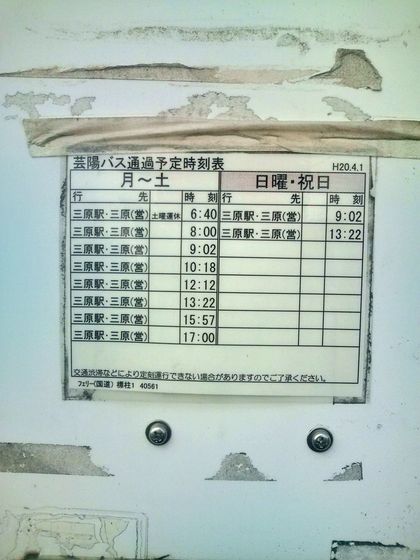 芸陽バス通過予定時刻表 H20.4.1
月～土 日曜・祝日
行先 時刻 行先 時刻
三原駅・三原(営) 土曜運休 6:40 三原駅・三原(営) 9:02
三原駅・三原(営) 8:00 三原駅・三原(営) 13:22
三原駅・三原(営) 9:02
三原駅・三原(営) 10:18
三原駅・三原(営) 12:12
三原駅・三原(営) 13:22
三原駅・三原(営) 15:57
三原駅・三原(営) 17:00
交通渋滞などにより定刻運行できない場合がありますのでご了承ください。
フェリー(国道) 標柱1 40561